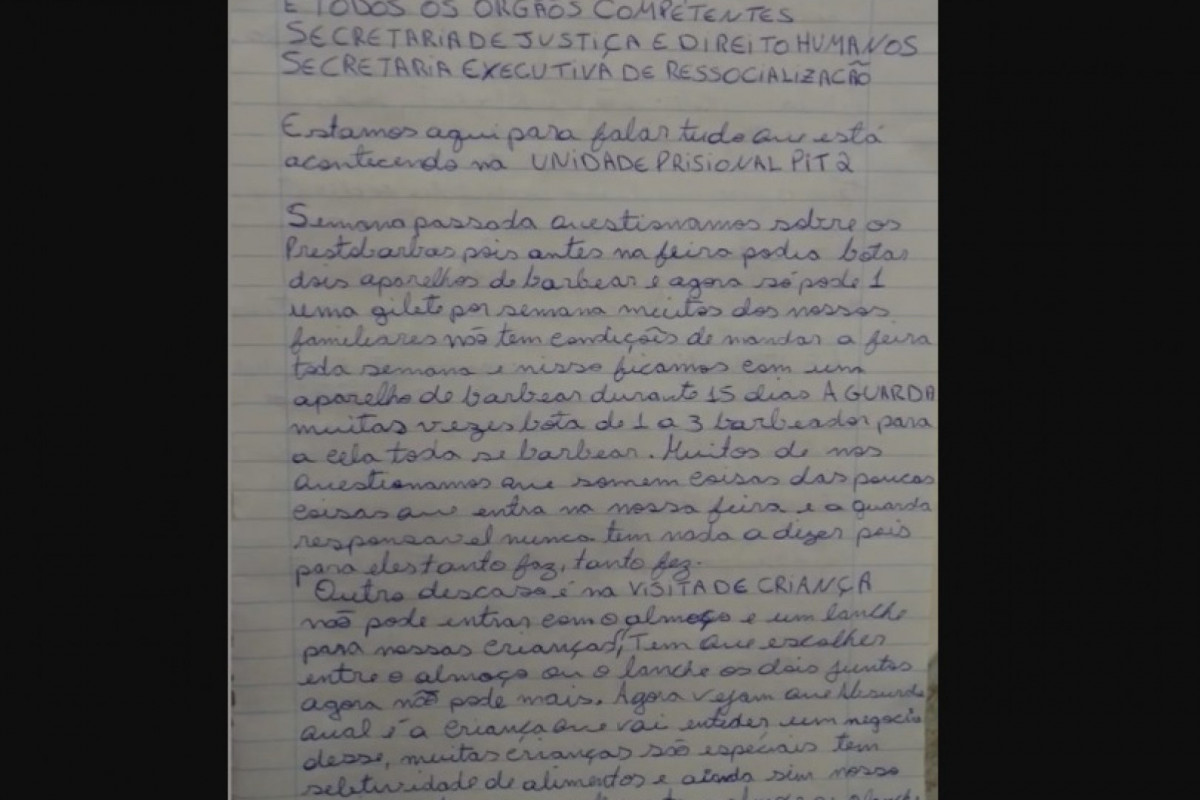 E TODOS OS ORGÃOS COMPETENTES
SECRETARIA DE JUSTIÇA E DIREITO HUMANOS
SECRETARIA EXECUTIVA DE RESSOCIALIZAÇÃO
Estamos aqui para falar tudo que está
acontecendo na UNIDADE PRISIONAL PIT 2
Semana passada questionamos sobre os
Prestobarbas pois antes na feira podia botar
dois aparelhos de barbear e agora só pode 1
uma gilete por semana muitos dos nossos
familiares não tem condições de mandar a feira
toda semana e nisso ficamos com um
aparelho de barbear durante 15 dias A GUARDA
muitas vezes bota de 1 a 3 barbeador para
a cela toda se barbear. Muitos de nos
questionamos que somem coisas das poucas
coisas que entra na nossa feira e a guarda
responsavel nunca tem nada a dizer pois
para eles tanto faz, tanto fez.
Outro descaso é na VISITA DE CRIANÇA
não pode entrar com o almoço e um lanche
para nossas crianças, Tem que escolher
entre o almoço ou o lanche os dois juntos
agora não pode mais. Agora vejam que Absurdo
qual é a criança que vai enteder um negocio
desse, muitas crianças são especiais tem
seletividade de alimentos e ainda sim nosso
lanche